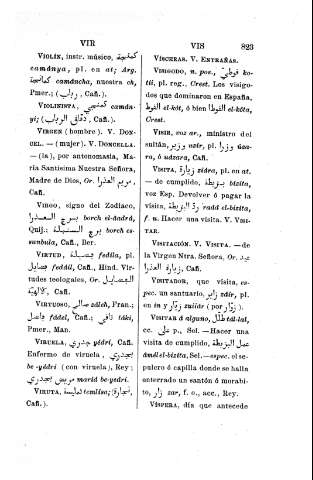 VIR
VIS
823
VIOLIN, instr. músico, كمنجة
camánya, pl. en at; Arg.
camáncha, nuestra ch, كمانجة
Pmer.; (رباب, Cañ.).
VIOLINISTA, كمنجي camán-
yi; (دقاق الرباب, Cañ.).
VIRGEN (hombre). V. DON-
CEL. — (mujer). V. DONCELLA.
— (la), por antonomasia, Ma-
ría Santísima Nuestra Señora,
Madre de Dios, Or. مريم العذرا,
Cañ.
VIRGO, signo del Zodiaco,
برج العـــذرا borch el-âadrá,
Quij.; برج السنبـــلة borch es-
sanbula, Cañ., Ber.
VIRTUD, فضيـــلة fedíla, pl.
فضايل fedáil, Cañ., Hind. Vir-
tudes teologales, Or. الفضـــايل
الالاهية, Cañ.
VIRTUOSO, صالح záleh, Fran.;
فاضل fádel, Cañ.; تاقي táki,
Pmer., Man.
VIRUELA, جدري yédri, Cañ.
Enfermo de viruela, بجـــدري
be-yédri (con viruela), Rey;
مريض بجدري marid be-yedri.
VIRUTA, تمليسة temlísa; (نجارة,
Cañ.).
VÍSCERAS. V. ENTRAÑAS.
VISIGODO, n. pos., قوطي ko-
tíi, pl. reg., Crest. Los visigo-
dos que dominaron en España,
القوط el-kót, ó bien القوطة el-kóta,
Crest.
VISIR, voz ar., ministro del
sultán, وزير uazir, pl. وزرا úza-
ra, ó udzara, Cañ.
VISITA, زيارة zíára, pl. en at.
— de cumplido, بزيطة bizíta,
voz Esp. Devolver ó pagar la
visita, رد البزيطة radd el-bizíta,
f. u. Hacer una visita. V. VISI-
TAR.
VISITACIÓN. V. VISITA. — de
la Virgen Ntra. Señora, Or. عيد
زيارة العذرا, Cañ.
VISITADOR, que visita, es-
pec. un santuario, زاير záir, pl.
en in y زوار zuúár (por زوار).
VISITAR á alguno, طلل tál-lal,
cc. على p., Sol. — Hacer una
visita de cumplido, عمل البزيطة
âmél el-bizíta, Sol. — espec. el se-
pulcro ó capilla donde se halla
enterrado un santón ó morabi-
to, زار zar, f. o., acc., Rey.
VÍSPERA, día que antecede